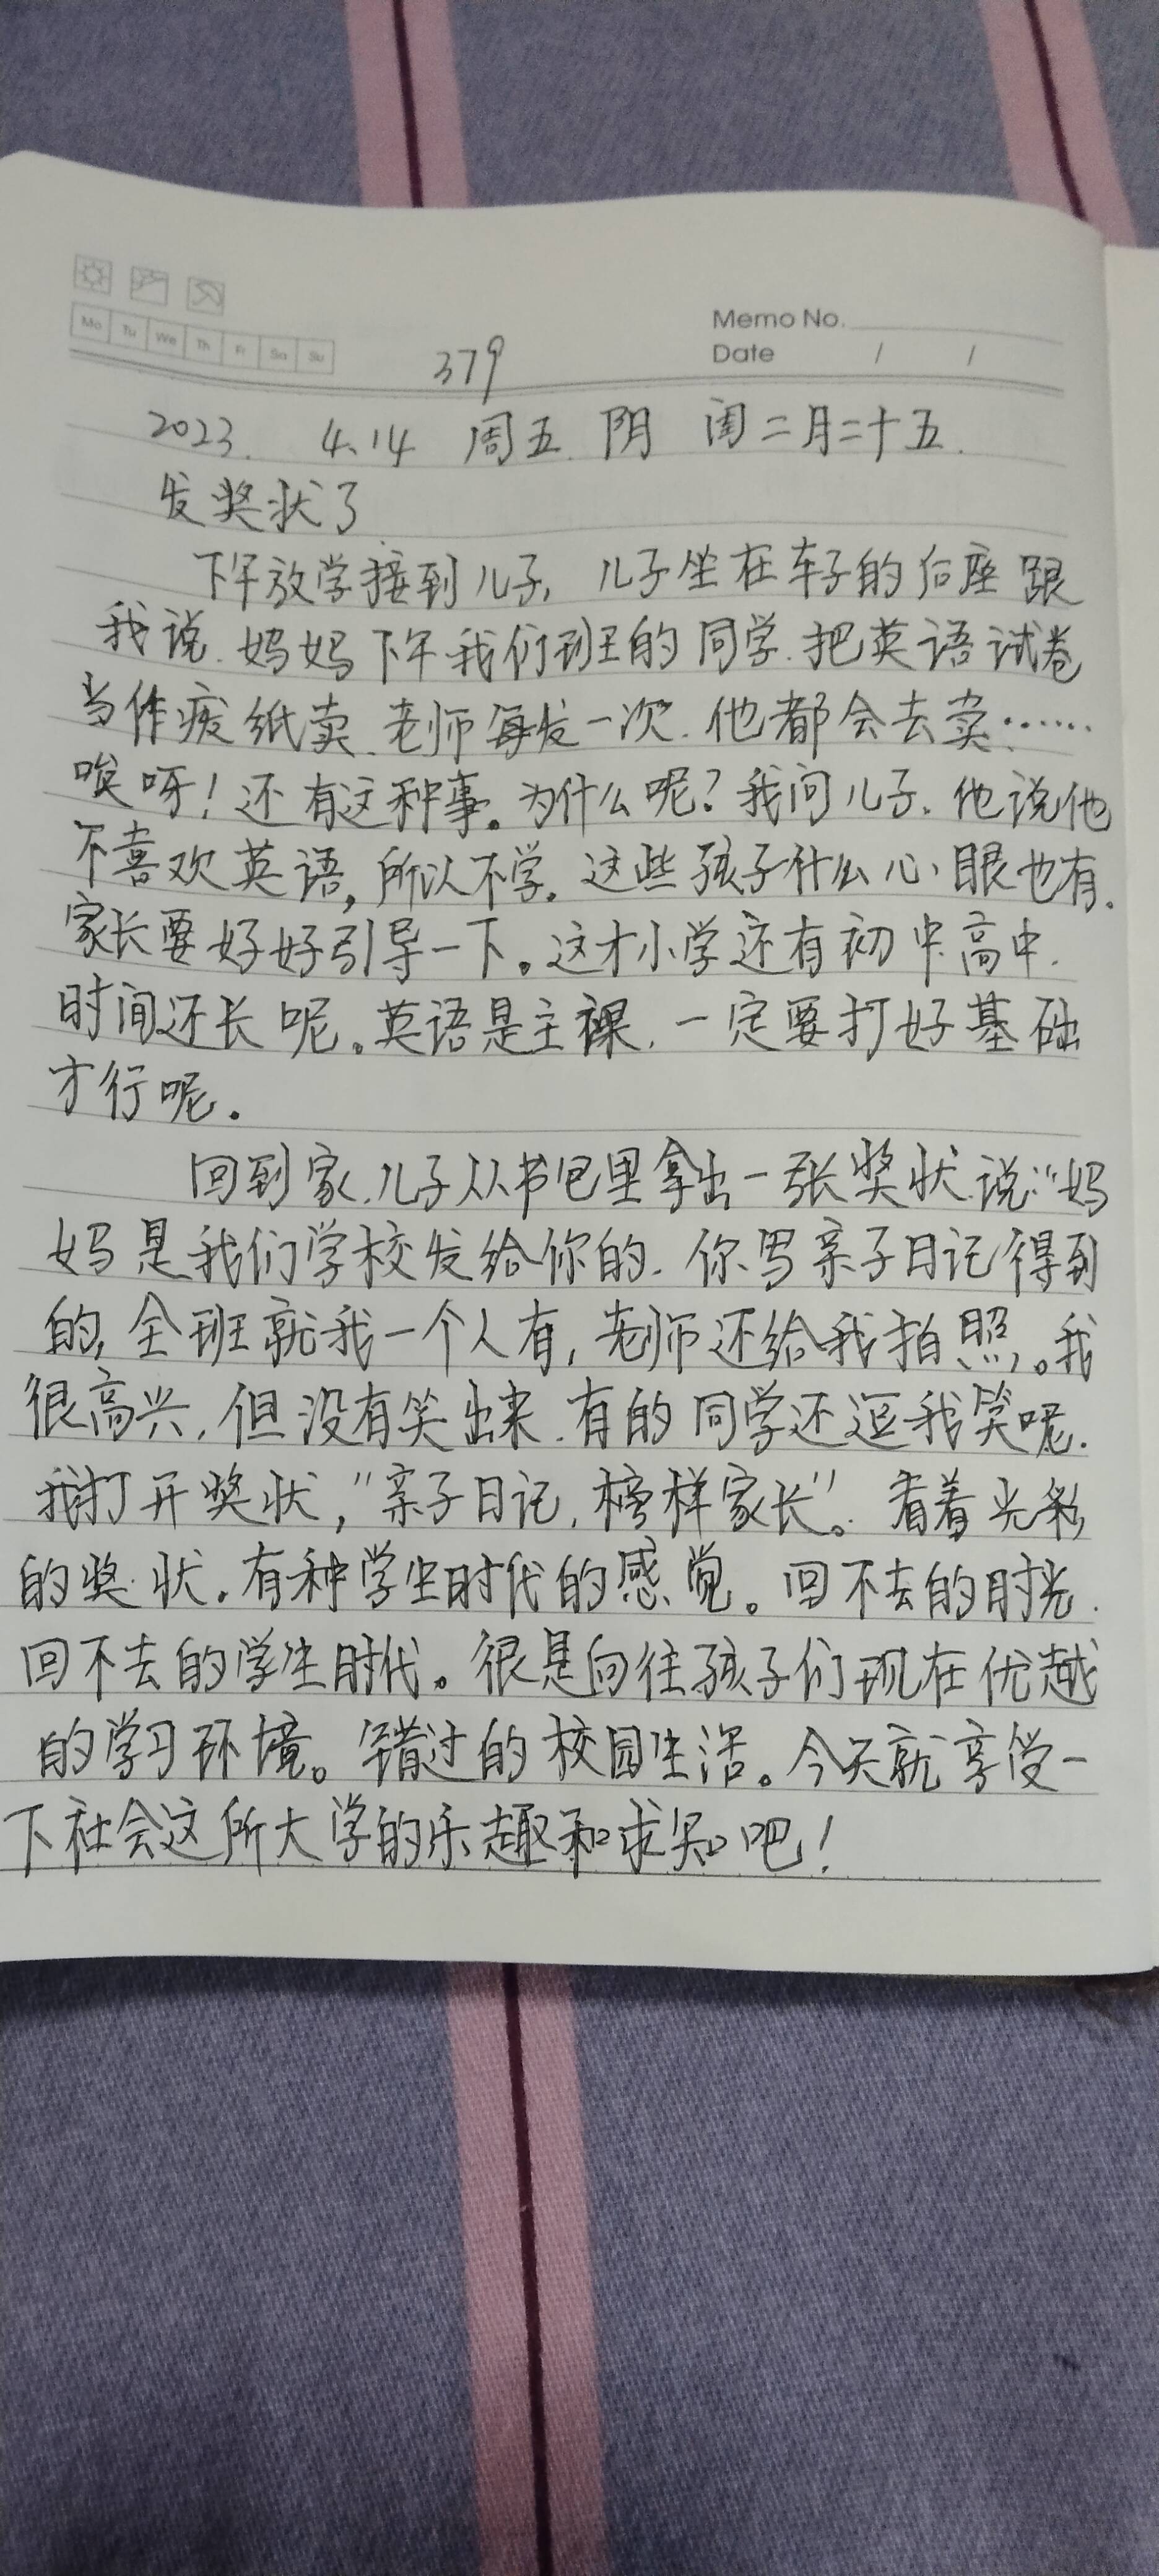 Mo Tu We Th Fr Sa Su
Memo No.
Date / /
379
2023. 4.14 周五 阴 闰二月二十五.
发奖状了
下午放学接到儿子, 儿子坐在车子的后座跟
我说.妈妈下午我们班的同学.把英语试卷
当作废纸卖.老师每发一次.他都会去卖……
唉呀!还有这种事。为什么呢?我问儿子.他说他
不喜欢英语,所以不学.这些孩子什么心眼也有.
家长要好好引导一下。这才小学还有初中.高中.
时间还长呢。英语是主课.一定要打好基础
才行呢.
回到家.儿子从书包里拿出一张奖状.说:“妈
妈是我们学校发给你的.你写亲子日记得到
的,全班就我一个人有,老师还给我拍照。我
很高兴,但没有笑出来.有的同学还逗我笑呢.
我打开奖状,“亲子日记,榜样家长”。看着光彩
的奖状.有种学生时代的感觉。回不去的时光.
回不去的学生时代。很是向往孩子们现在优越
的学习环境。错过的校园生活。今天就享受一
下社会这所大学的乐趣和求知吧!